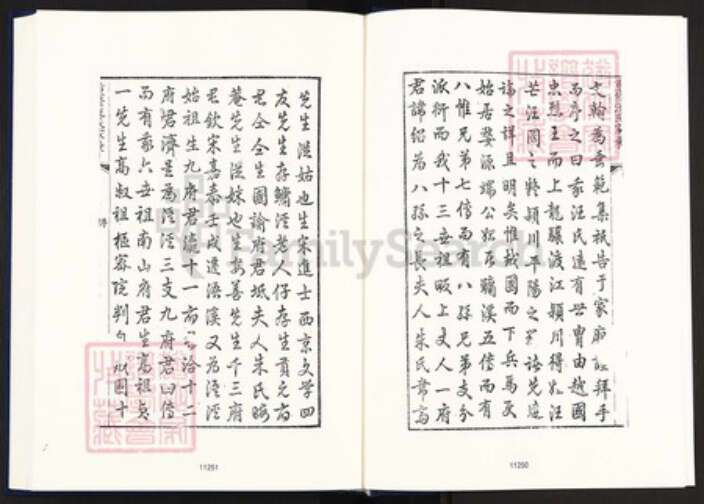 文翰為垂範集祇告于家廟 拜手
而序之曰我汪氏遠有世胄由越國
忠烈王而上龍驤渡江潁川得姓汪
芒汪罔之辨潁川平陽之 諸先
論之詳且明矣惟越國而下兵馬
始居婺源端公始居 溪五傳而有
八惟兄弟七傳而有八孫兄弟支分
派衍而我十三世祖畈上丈人一府
君諱紹為八孫之長夫人朱氏 高
先生從姑也生宋進士西京文學四
友先生存 老人仔存生貢元高
君仝仝生國諭府君坻夫人朱氏晦
菴先生從妹也生 善先生千三府
君欽宋嘉泰壬戌遷浯溪又為
始祖生九府君 十一府 洽十二
府君濟是為 三支九府君四傳
而有我六世祖南山府君生高祖貞
一先生高叔祖樞密院判 以國十
11250
11251
FamilySearch